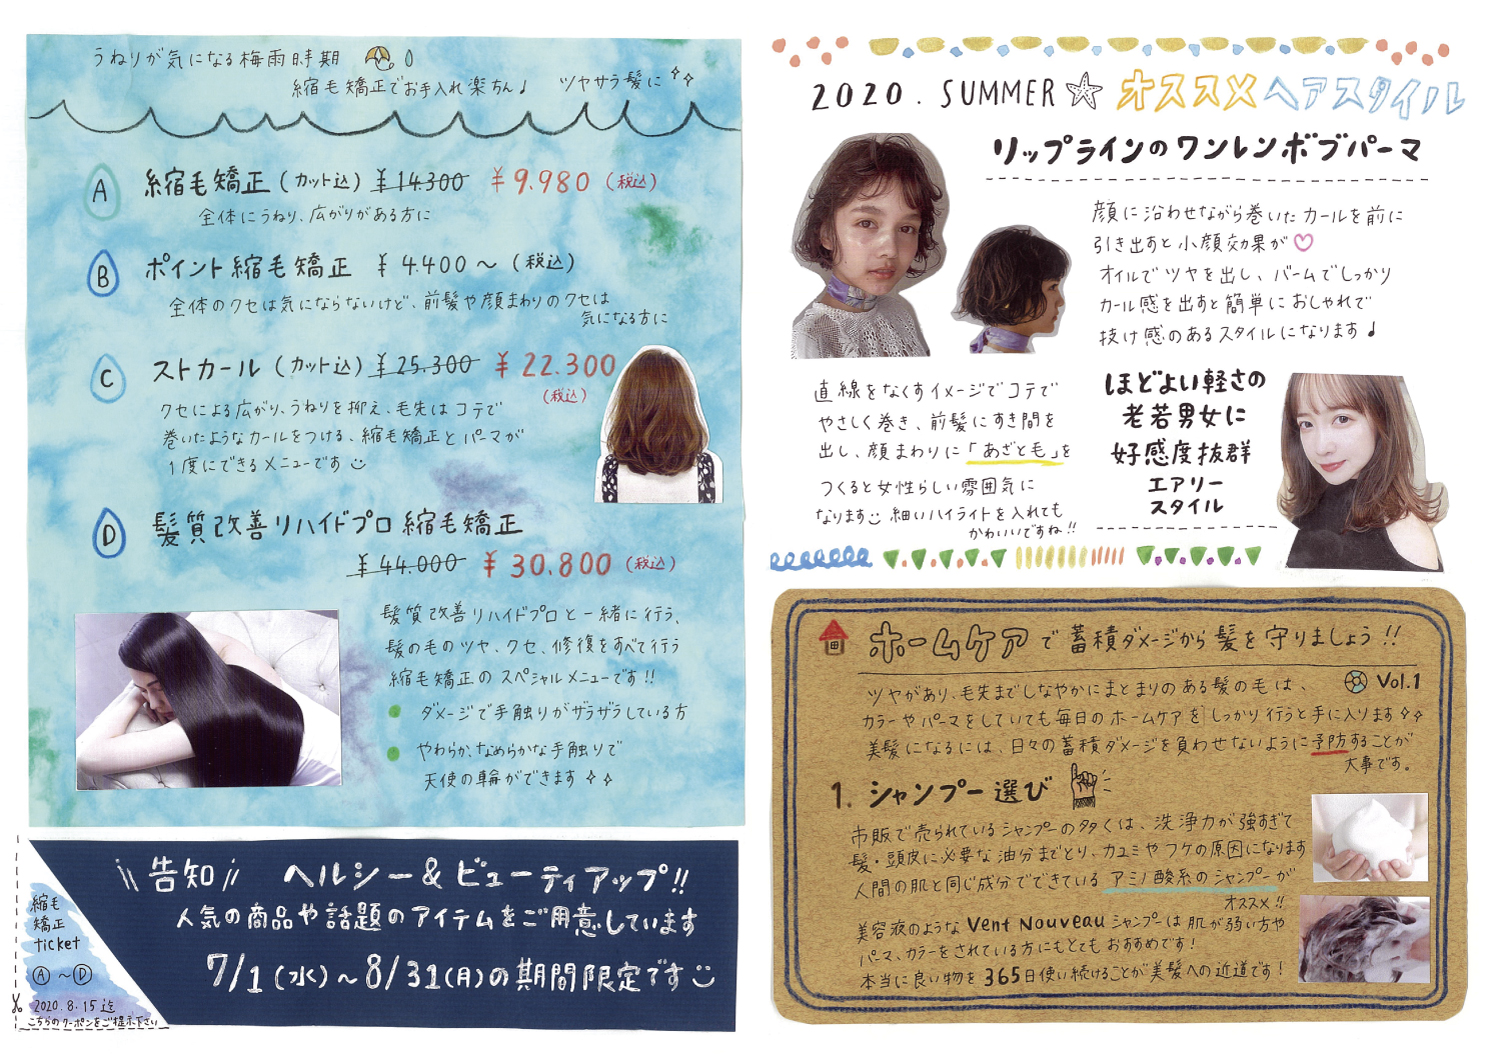 うねりが気になる梅雨時期
縮毛矯正でお手入れ楽ちん♩ ツヤサラ髪に
A 縮毛矯正(カット込) ¥14.300 ¥9.980(税込)
全体にうねり、広がりがある方に
B ポイント縮毛矯正 ¥4.400〜(税込)
全体のクセは気にならないけど、前髪や顔まわりのクセは
気になる方に
C ストカール(カット込) ¥25.300 ¥22.300
(税込)
クセによる広がり、うねりを抑え、毛先はコテで
巻いたようなカールをつける、縮毛矯正とパーマが
1度にできるメニューです
D 髪質改善リハイドプロ縮毛矯正
¥44.000 ¥30.800(税込)
髪質改善リハイドプロと一緒に行う、
髪の毛のツヤ、クセ、修復をすべて行う
縮毛矯正のスペシャルメニューです!!
ダメージで手触りがザラザラしている方
やわらか、なめらかな手触りで
天使の輪ができます
告知 ヘルシー&ビューティアップ!!
人気の商品や話題のアイテムをご用意しています
7/1(水)〜8/31(月)の期間限定です
縮毛
矯正
ticket
A〜D
2020.8.15迄
こちらのクーポンをご提示下さい
2020.SUMMER☆オススメヘアスタイル
リップラインのワンレンボブパーマ
顔に沿わせながら巻いたカールを前に
引き出すと小顔効果が♡
オイルでツヤを出し、バームでしっかり
カール感を出すと簡単におしゃれで
抜け感のあるスタイルになります♩
直線をなくすイメージでコテで
やさしく巻き、前髪にすき間を
出し、顔まわりに「あざと毛」を
つくると女性らしい雰囲気に
なります 細いハイライトを入れても
かわいいですね!!
ほどよい軽さの
老若男女に
好感度抜群
エアリー
スタイル
ホームケアで蓄積ダメージから髪を守りましょう!!
Vol.1
ツヤがあり、毛先までしなやかにまとまりのある髪の毛は、
カラーやパーマをしていても毎日のホームケアをしっかり行うと手に入ります
美髪になるには、日々の蓄積ダメージを負わせないように予防することが
大事です。
1. シャンプー選び
市販で売られているシャンプーの多くは、洗浄力が強すぎて
髪・頭皮に必要な油分までとり、カユミやフケの原因になります
人間の肌と同じ成分でできているアミノ酸系のシャンプーが
オススメ!!
美容液のようなVent Nouveauシャンプーは肌が弱い方や
パーマ、カラーをされている方にもとてもおすすめです!
本当に良い物を365日使い続けることが美髪への近道です!